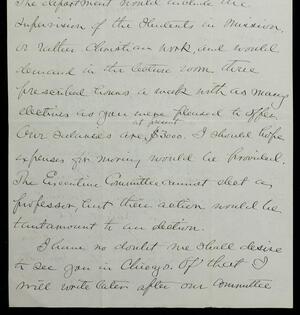 The department would include the
supervision of the students in mission,
or rather Christian work, and would
demand in the lecture room three
prescribed hours a week with as many
electives as you were pleased to offer.
at present
Our salaries are $3000. I should hope
expenses for moving would be provided.
The Executive Committee cannot elect a
professor, but their action would be
tantamount to an election.
I have no doubt we shall desire
to see you in Chicago. Of that I
will write later after our Committee